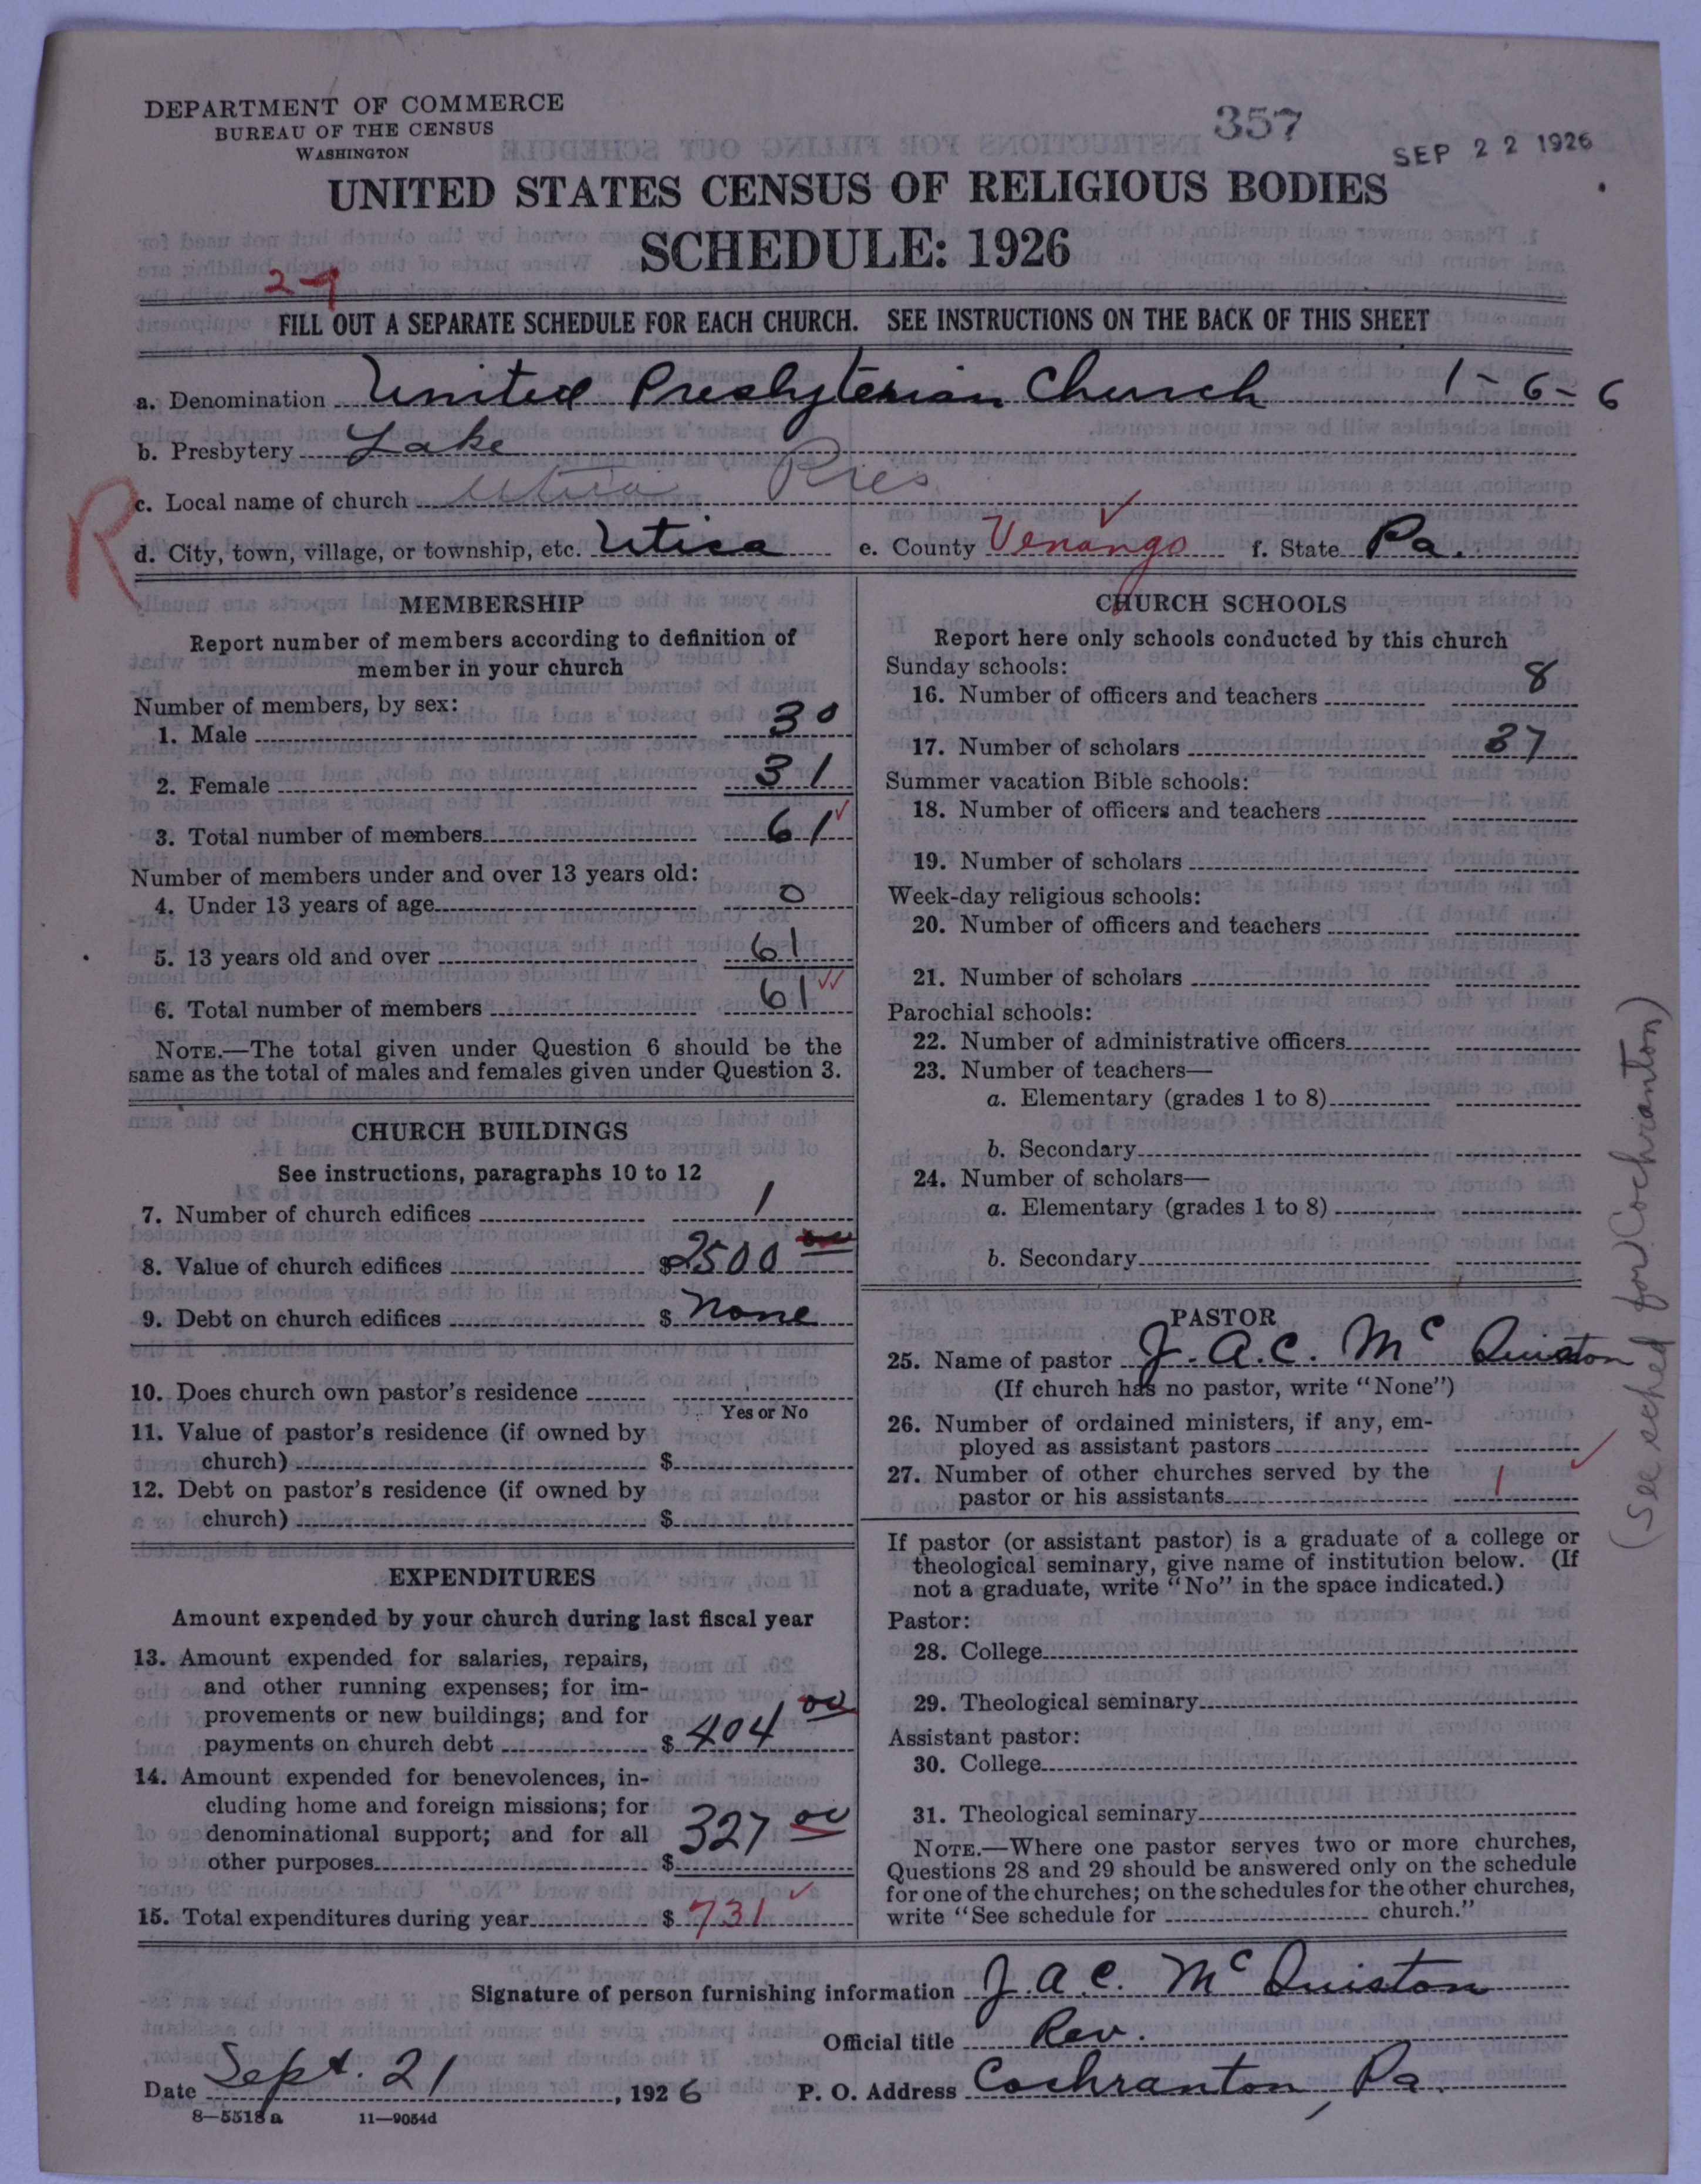 DEPARTMENT OF COMMERCE
BUREAU OF THE CENSUS
WASHINGTON
357
SEP 22 1926
UNITED STATES CENSUS OF RELIGIOUS BODIES
SCHEDULE: 1926
FILL OUT A SEPARATE SCHEDULE FOR EACH CHURCH. SEE INSTRUCTIONS ON THE BACK OF THIS SHEET
a. Denomination United Presbyterian Church 1-6-6
b. Presbytery Lake
R
c. Local name of church Utica Pres
d. City, town, village, or township, etc. Utica e. County Venango f. State Pa.
MEMBERSHIP
Report number of members according to definition of
member in your church
Number of members, by sex:
1. Male 30
2. Female 31
3. Total number of members 61
Number of members under and over 13 years old:
4. Under 13 years of age 0
5. 13 years old and over 61
6. Total number of members 61
NOTE.—The total given under Question 6 should be the
same as the total of males and females given under Question 3.
CHURCH BUILDINGS
See instructions, paragraphs 10 to 12
7. Number of church edifices 1
8. Value of church edifices $2500 00
9. Debt on church edifices $ None
10. Does church own pastor's residence
Yes or No
11. Value of pastor's residence (if owned by
church) $
12. Debt on pastor's residence (if owned by
church) $
EXPENDITURES
Amount expended by your church during last fiscal year
13. Amount expended for salaries, repairs,
and other running expenses; for im-
provements or new buildings; and for
payments on church debt $ 404 00
14. Amount expended for benevolences, in-
cluding home and foreign missions; for
denominational support; and for all
other purposes $ 327 00
15. Total expenditures during year $ 731
CHURCH SCHOOLS
Report here only schools conducted by this church
Sunday schools:
16. Number of officers and teachers 8
17. Number of scholars 37
Summer vacation Bible schools:
18. Number of officers and teachers
19. Number of scholars
Week-day religious schools:
20. Number of officers and teachers
21. Number of scholars
Parochial schools:
22. Number of administrative officers
23. Number of teachers—
a. Elementary (grades 1 to 8)
b. Secondary
24. Number of scholars—
a. Elementary (grades 1 to 8)
b. Secondary
PASTOR
25. Name of pastor J. A. C. McQuiston
(If church has no pastor, write "None")
26. Number of ordained ministers, if any, em-
ployed as assistant pastors
27. Number of other churches served by the
pastor or his assistants 1
If pastor (or assistant pastor) is a graduate of a college or
theological seminary, give name of institution below. (If
not a graduate, write "No" in the space indicated.)
Pastor:
28. College
29. Theological seminary
Assistant pastor:
30. College
31. Theological seminary
NOTE.—Where one pastor serves two or more churches,
Questions 28 and 29 should be answered only on the schedule
for one of the churches; on the schedules for the other churches,
write "See schedule for church."
(See sched for Cochranton)
Signature of person furnishing information J. A. C. McQuiston
Official title Rev.
Date Sept. 21, 1926 P. O. Address Cochranton, Pa.
8—5518 a 11—9054d